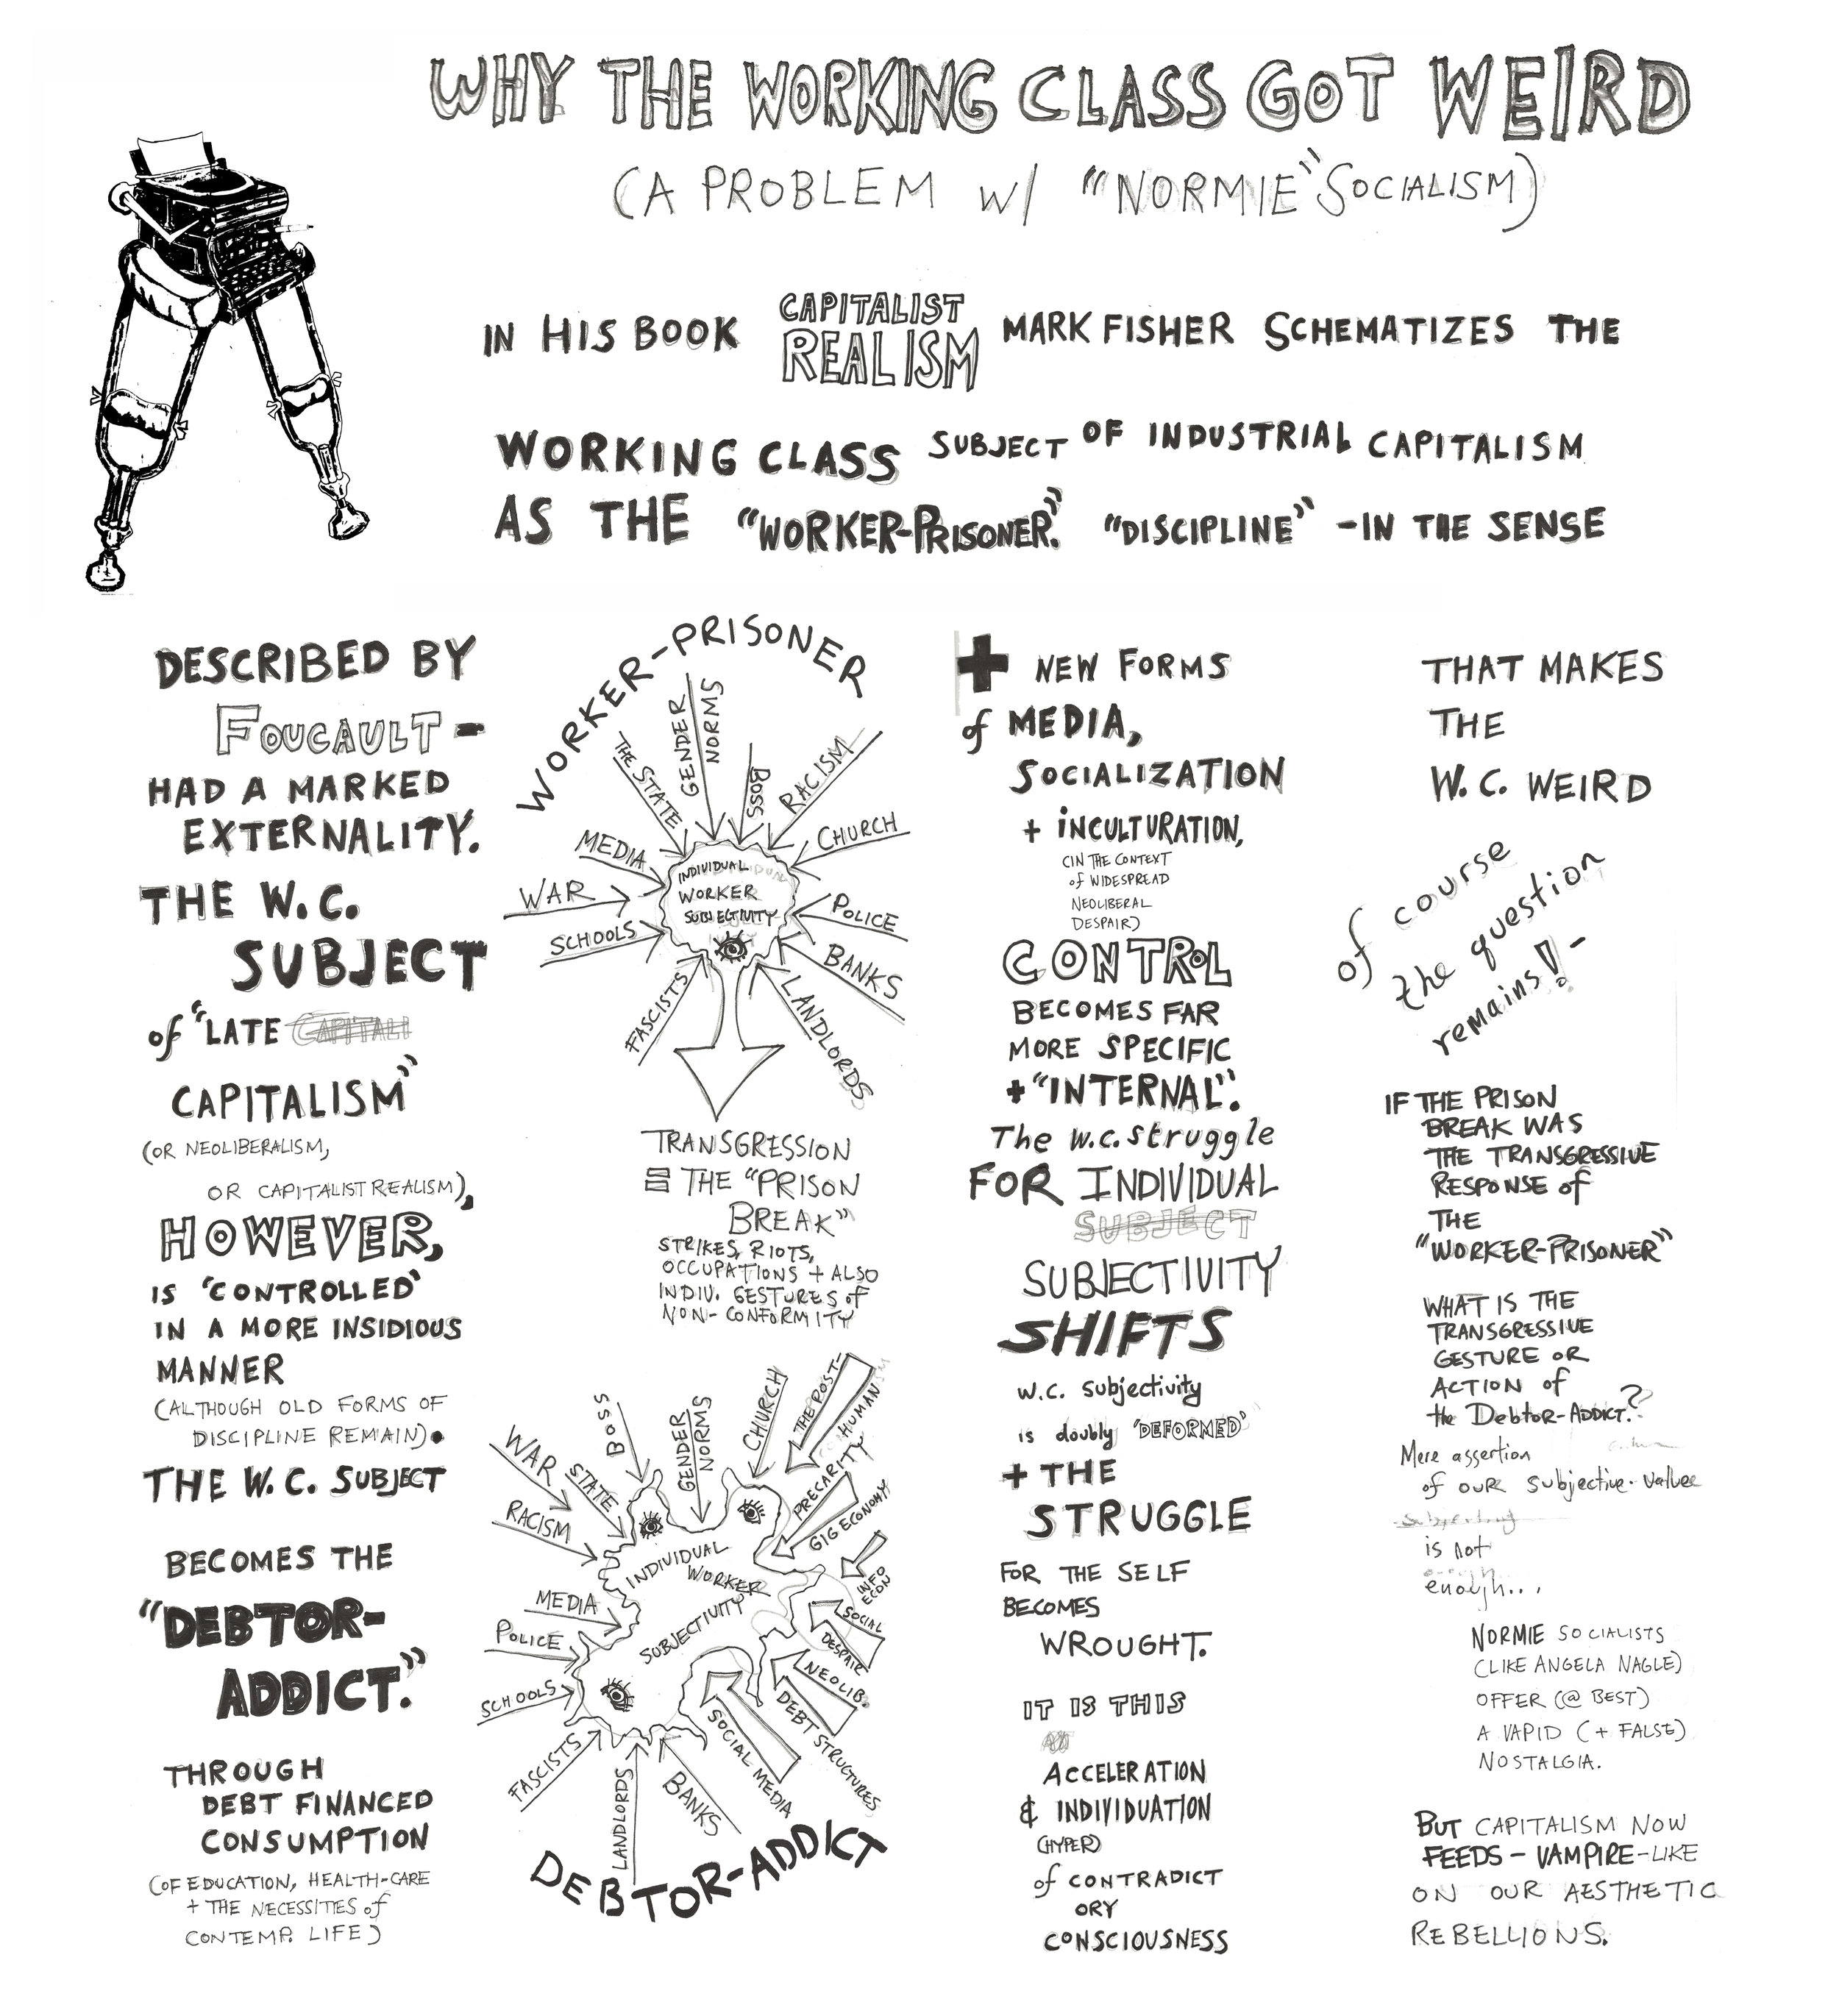 WHY THE WORKING CLASS GOT WEIRD
(A PROBLEM W/ "NORMIE" SOCIALISM)
IN HIS BOOK CAPITALIST REALISM MARK FISHER SCHEMATIZES THE
WORKING CLASS SUBJECT OF INDUSTRIAL CAPITALISM
AS THE "WORKER-PRISONER." "DISCIPLINE" - IN THE SENSE
DESCRIBED BY
FOUCAULT -
HAD A MARKED
EXTERNALITY.
THE W.C.
SUBJECT
of "LATE CAPITALI
CAPITALISM"
(OR NEOLIBERALISM,
OR CAPITALIST REALISM),
HOWEVER,
IS 'CONTROLLED'
IN A MORE INSIDIOUS
MANNER
(ALTHOUGH OLD FORMS OF
DISCIPLINE REMAIN).
THE W.C. SUBJECT
BECOMES THE
"DEBTOR-
ADDICT."
THROUGH
DEBT FINANCED
CONSUMPTION
(OF EDUCATION, HEALTH-CARE
+ THE NECESSITIES of
CONTEMP. LIFE)
WORKER-PRISONER
THE STATE
GENDER
NORMS
BOSS
RACISM
CHURCH
MEDIA
WAR
SCHOOLS
FASCISTS
POLICE
BANKS
LANDLORDS
INDIVIDUAL
WORKER
SUBJECTIVITY
TRANSGRESSION
= THE "PRISON
BREAK"
STRIKES, RIOTS,
OCCUPATIONS + ALSO
INDIV. GESTURES of
NON-CONFORMITY
WAR
STATE
BOSS
GENDER
NORMS
CHURCH
THE POST-
HUMAN
PRECARITY
GIG ECONOMY
INFO
ECON
SOCIAL
DESPAIR
NEOLIB.
DEBT STRUCTURES
SOCIAL MEDIA
BANKS
LANDLORDS
FASCISTS
SCHOOLS
POLICE
MEDIA
RACISM
INDIVIDUAL
WORKER
SUBJECTIVITY
DEBTOR-ADDICT
+ NEW FORMS
of MEDIA,
SOCIALIZATION
+ INCULTURATION,
(IN THE CONTEXT
of WIDESPREAD
NEOLIBERAL
DESPAIR)
CONTROL
BECOMES FAR
MORE SPECIFIC
+ "INTERNAL".
The w.c. struggle
FOR INDIVIDUAL
SUBJECT
SUBJECTIVITY
SHIFTS
w.c. subjectivity
is doubly 'DEFORMED'
+ THE
STRUGGLE
FOR THE SELF
BECOMES
WROUGHT.
IT IS THIS
ACCELERATION
& INDIVIDUATION
(HYPER)
of CONTRADICT
ORY
CONSCIOUSNESS
THAT MAKES
THE
W.C. WEIRD
of course
the question
remains! -
IF THE PRISON
BREAK WAS
THE TRANSGRESSIVE
RESPONSE of
THE
"WORKER-PRISONER"
WHAT IS THE
TRANSGRESSIVE
GESTURE OR
ACTION of
the Debtor-ADDICT?
Mere assertion
of our subjective-value
is not
enough...
NORMIE SOCIALISTS
(LIKE ANGELA NAGLE)
OFFER (@ BEST)
A VAPID (+ FALSE)
NOSTALGIA.
BUT CAPITALISM NOW
FEEDS - VAMPIRE-LIKE
ON OUR AESTHETIC
REBELLIONS.